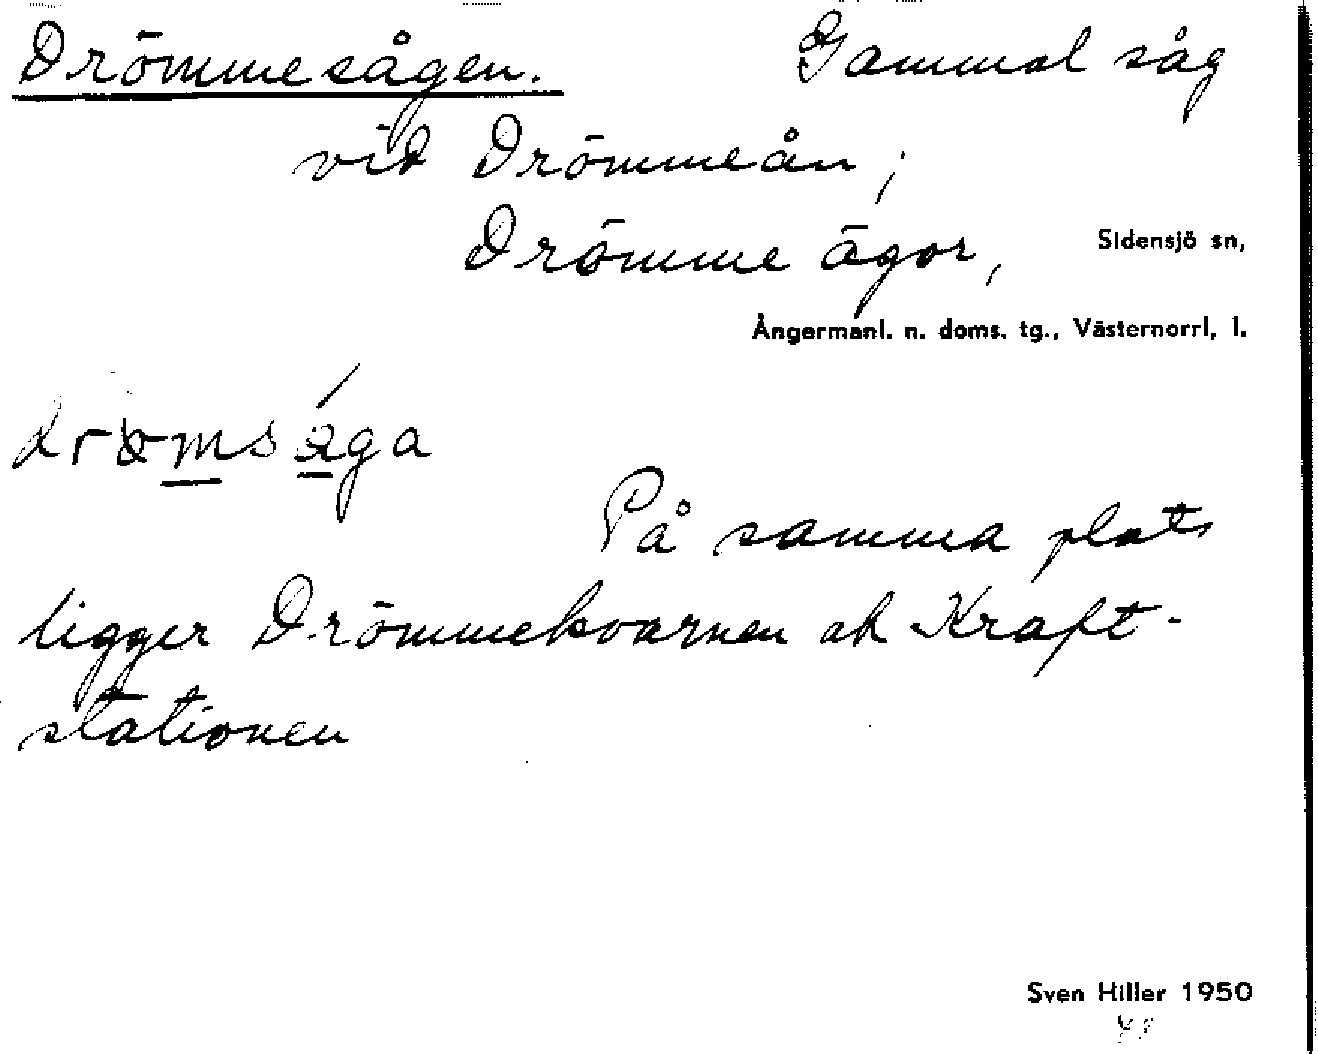 Drömmesågen. Gammal såg
vid Drömmeån,
Drömme ägor, Sidensjö sn,
Ångermanl. n. doms. tg., Västernorrl. l.
På samma plats
ligger Drömmekvarnen ok Kraft-
stationen
Sven Hiller 1950